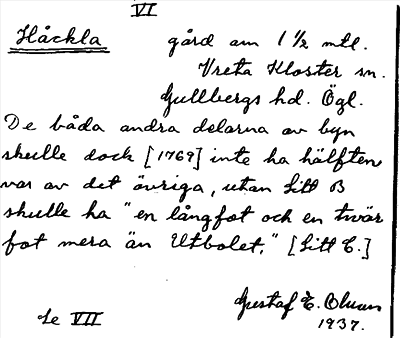 VI
Håckla gård om 1 1/2 mtl.
Vreta Kloster sn.
Gullbergs hd. Ögl.
De båda andra delarna av byn
skulle dock [1769] inte ha hälften
var av det övriga, utan Litt B
skulle ha "en långfot och en tvär
fot mera än Utbolet." [Litt C.]
Gustaf E. Oluan
Se VII 1937.